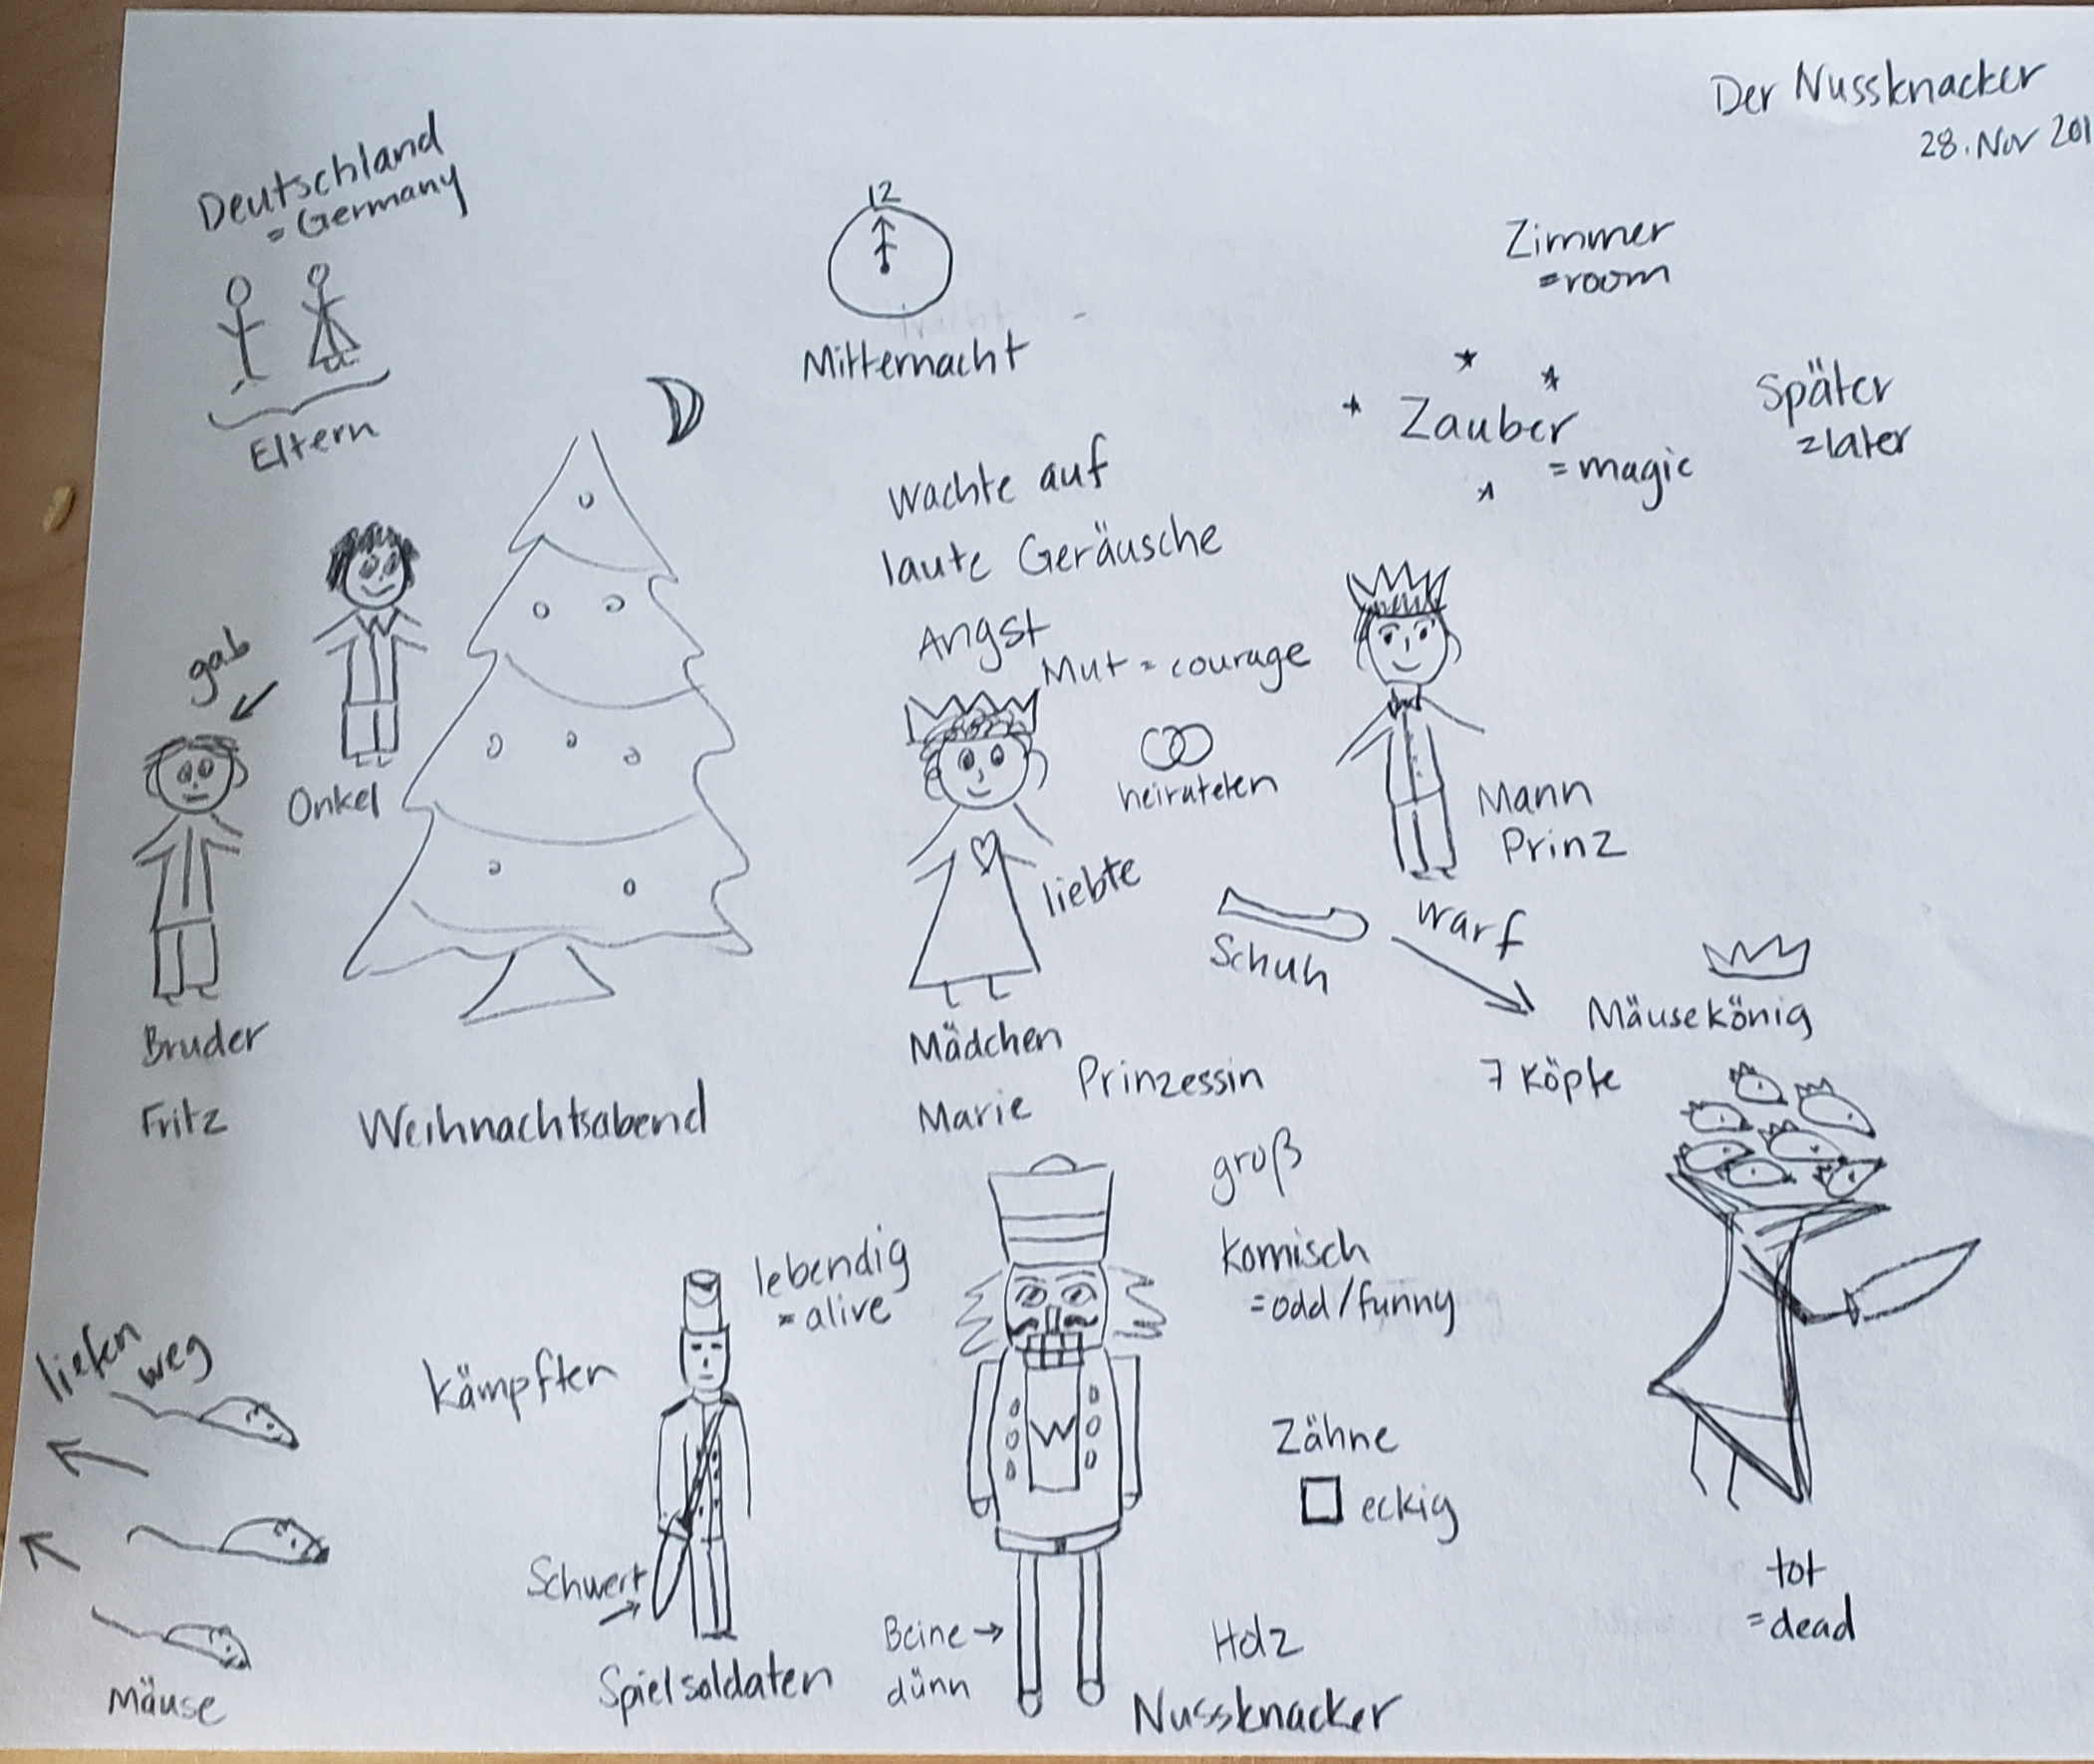 Der Nussknacker
28. Nov 201
Deutschland
= Germany
Eltern
12
Mitternacht
Zimmer
=room
Zauber
= magic
Später
=later
wachte auf
laute Geräusche
Angst
Mut = courage
gab
Onkel
Bruder
Fritz
Weihnachtsabend
heirateten
liebte
Mädchen
Prinzessin
Marie
Mann
Prinz
Schuh
warf
Mäusekönig
7 Köpfe
groß
komisch
=odd/funny
Zähne
eckig
Holz
Nussknacker
Beine
dünn
W
lebendig
=alive
kämpften
Schwert
Spielsoldaten
liefen
weg
Mäuse
tot
=dead